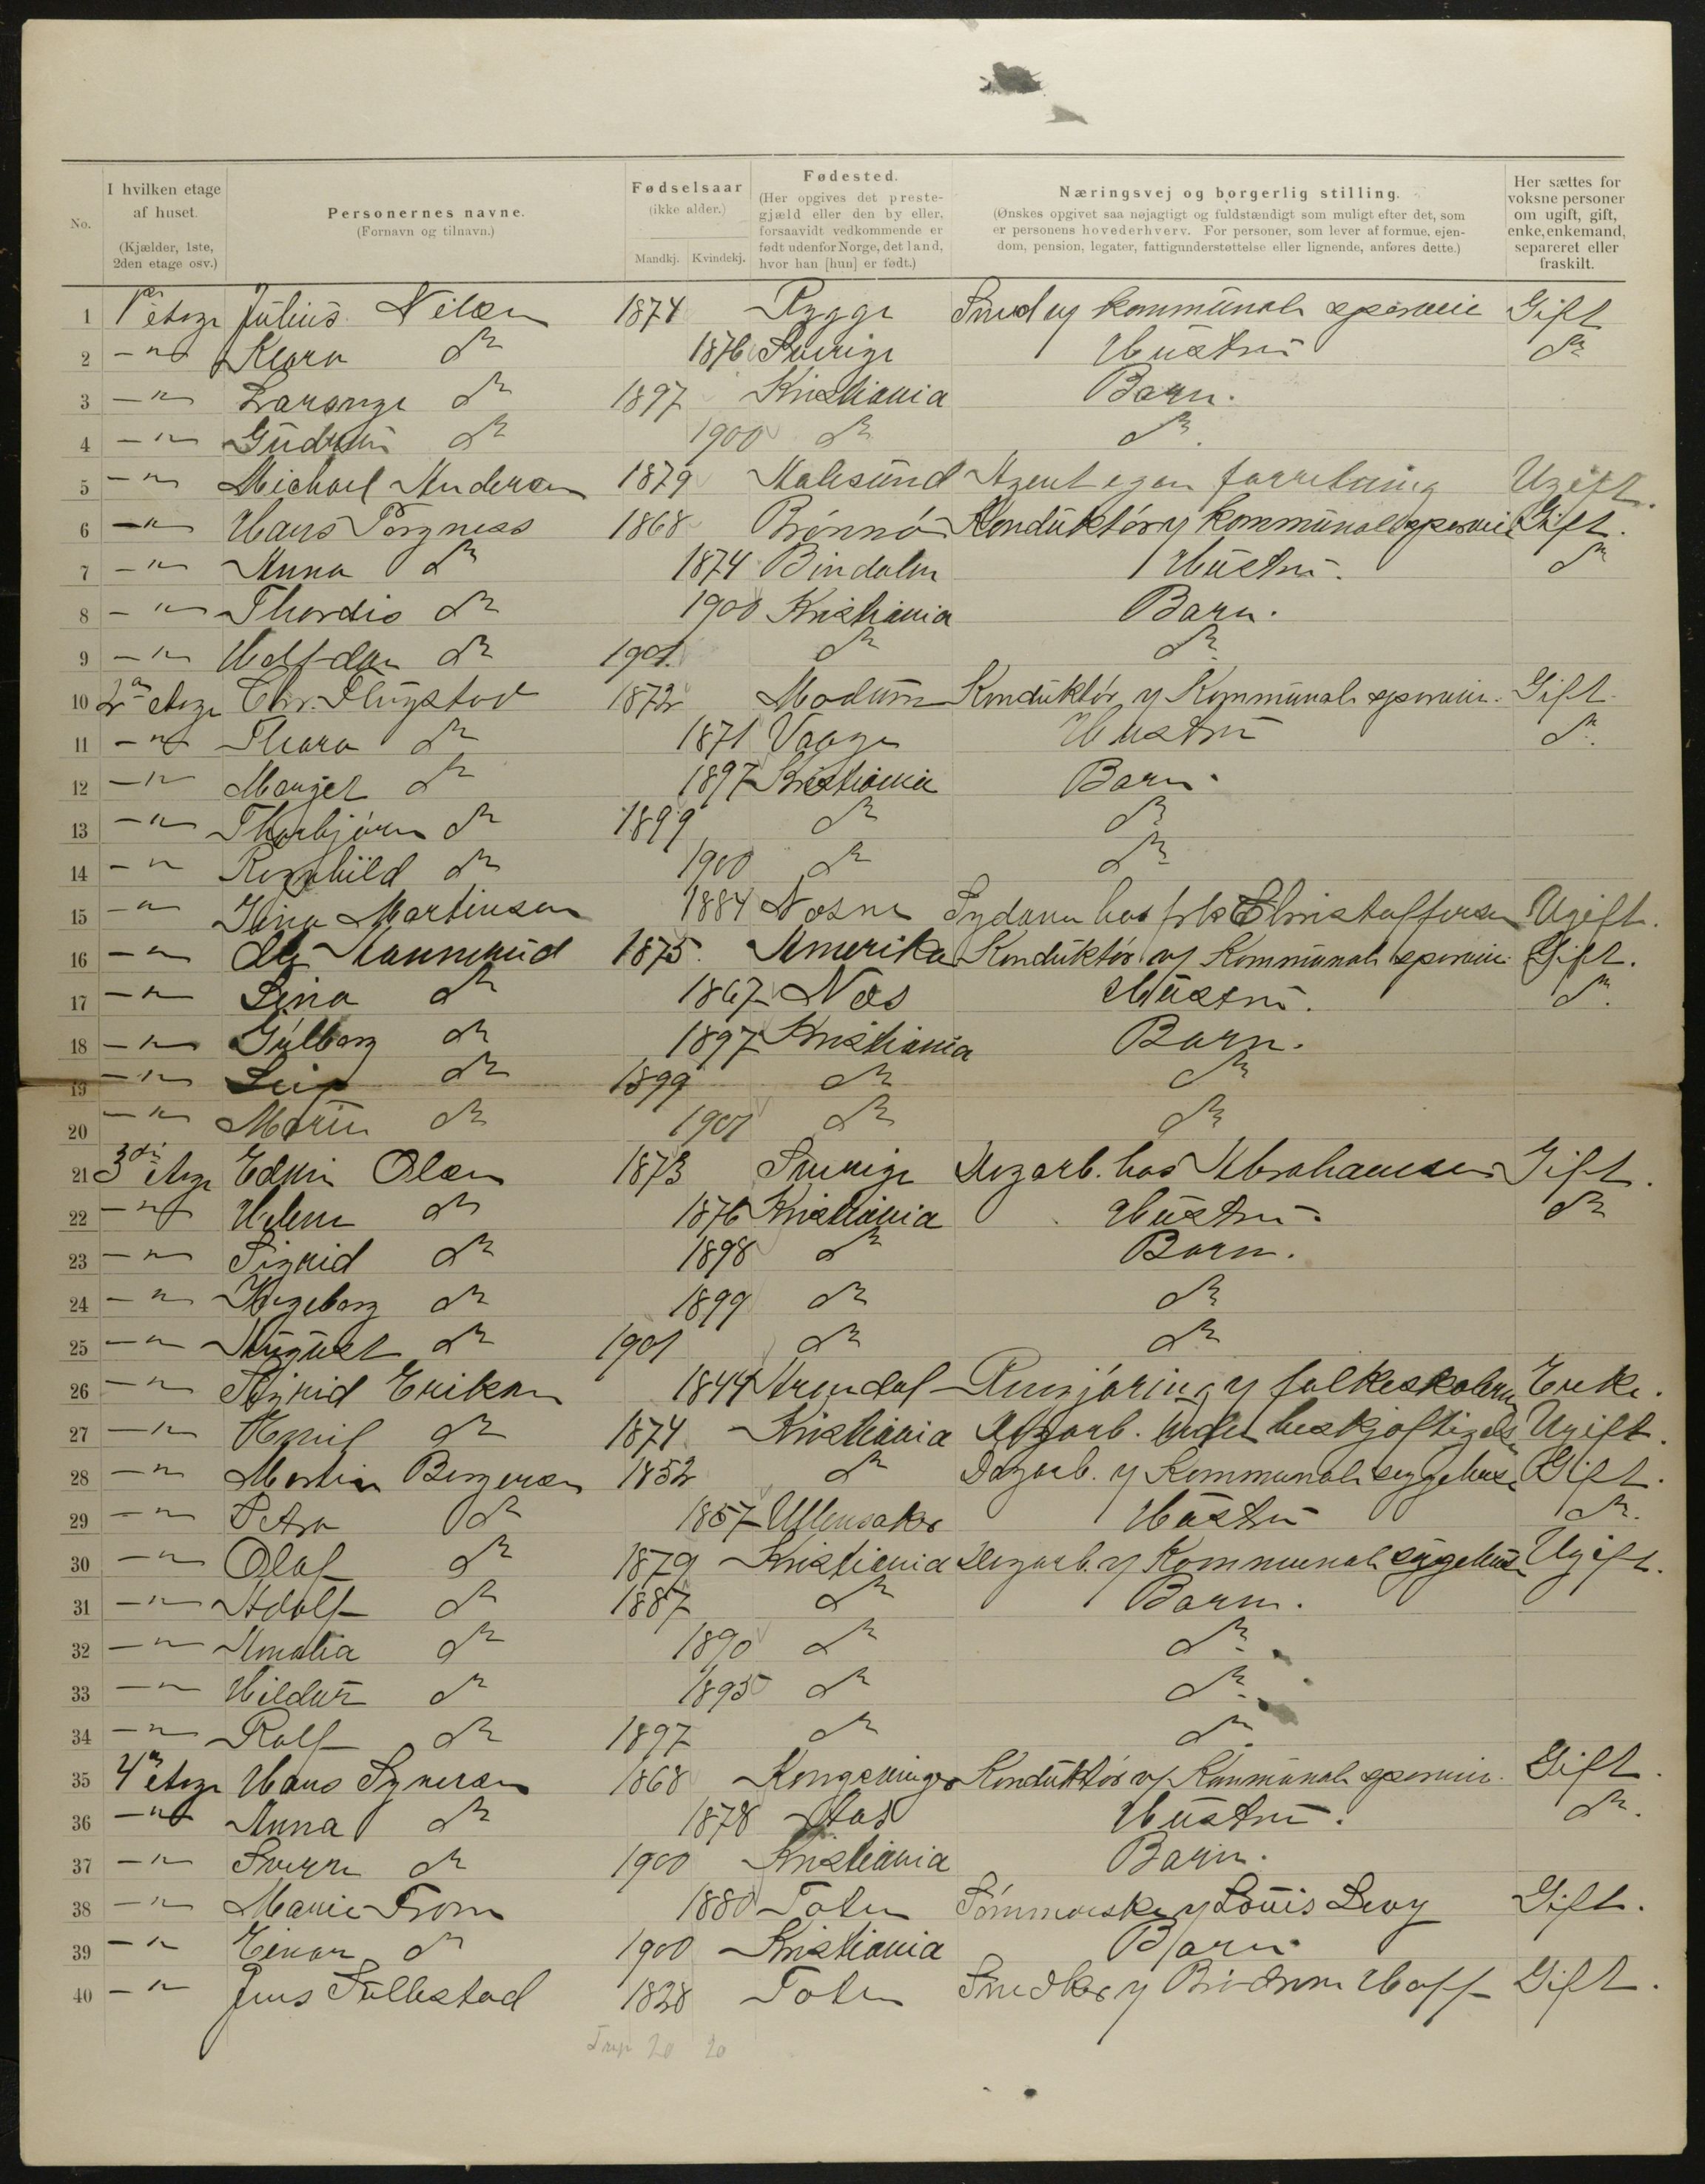 No.
I hvilken etage af huset. (Kjælder, 1ste, 2den etage osv.)
Personernes navne. (Fornavn og tilnavn.)
Fødselsaar (ikke alder.) Mandkj. Kvindekj.
Fødested. (Her opgives det prestegjæld eller den by eller, forsaavidt vedkommende er født udenfor Norge, det land, hvor han [hun] er født.)
Næringsvej og borgerlig stilling. (Ønskes opgivet saa nøjagtigt og fuldstændigt som muligt efter det, som er personens hovederhverv. For personer, som lever af formue, ejendom, pension, legater, fattigunderstøttelse eller lignende, anføres dette.)
Her sættes for voksne personer om ugift, gift, enke, enkemand, separeret eller fraskilt.
1 1ste etage Julius Nilsen 1874 Rygge Smed v kommunale sporveie Gift
2 —"— Klara do 1876 Sverige Hustru do
3 —"— do 1897 Kristiania Barn.
4 —"— Gudrun do 1900 do do.
5 —"— Michael Andersen 1879 Aalesund Agent egen forretning Ugift.
6 —"— Hans 1868 Brønnø Konduktør v kommunale sporveie Gift.
7 —"— Anna do 1874 Bindalen Hustru. do
8 —"— Thordis do 1900 Kristiania Barn.
9 —"— Halfdan do 1901. do do
10 2den etage Chr. 1872 Modum Konduktør v Kommunale sporveie. Gift.
11 —"— Thora do 1871 Vaage Hustru do.
12 —"— Margit do 1897 Kristiania Barn.
13 —"— Thorbjørn do 1899 do do
14 —"— Ragnhild do 1900 do do
15 —"— Martinsen 1884 Næsne Sydame hos frk Christoffersen Ugift.
16 —"— 1875. Amerika Konduktør v Kommunale sporveie Gift.
17 —"— Lina do 1867 Næs Hustru. do.
18 —"— Gulborg do 1897 Kristiania Barn.
19 —"— Leif do 1899 do do
20 —"— do 1901 do do
21 3die etage Edvin Olsen 1873 Sverige Dagarb. hos Abrahamsen Gift.
22 —"— Helene do 1876 Kristiania Hustru. do
23 —"— Sigrid do 1898 do Barn.
24 —"— Ingeborg do 1899 do do
25 —"— August do 1901 do do
26 —"— Eriksen 1844 Arendal Rengjøring v folkeskolerne Enke.
27 —"— Emil do 1874 Kristiania Dagarb. uden beskjæftigelse Ugift.
28 —"— Martin Bergersen 1852 do Dagarb. v Kommunale sygehus Gift.
29 —"— Petra do 1857 Ullensaker Hustru do.
30 —"— Olaf do 1879 Kristiania Dagarb. v Kommunale sygehus Ugift.
31 —"— Adolf do 1887 do Barn.
32 —"— Amalia do 1890 do do.
33 —"— Hildur do 1895 do do.
34 —"— Rolf do 1897 do do.
35 4de etage Hans Syversen 1868 Kongsvinger Konduktør v Kommunale sporveie. Gift.
36 —"— Anna do 1878 Hustru. do.
37 —"— Sverre do 1900 Kristiania Barn.
38 —"— Marie 1880 Toten Sømmerske v Louis Levy Gift.
39 —"— Einar do 1900 Kristiania Barn
40 —"— Jens 1828 Toten Snedker v Brødrene Gift.
20 20